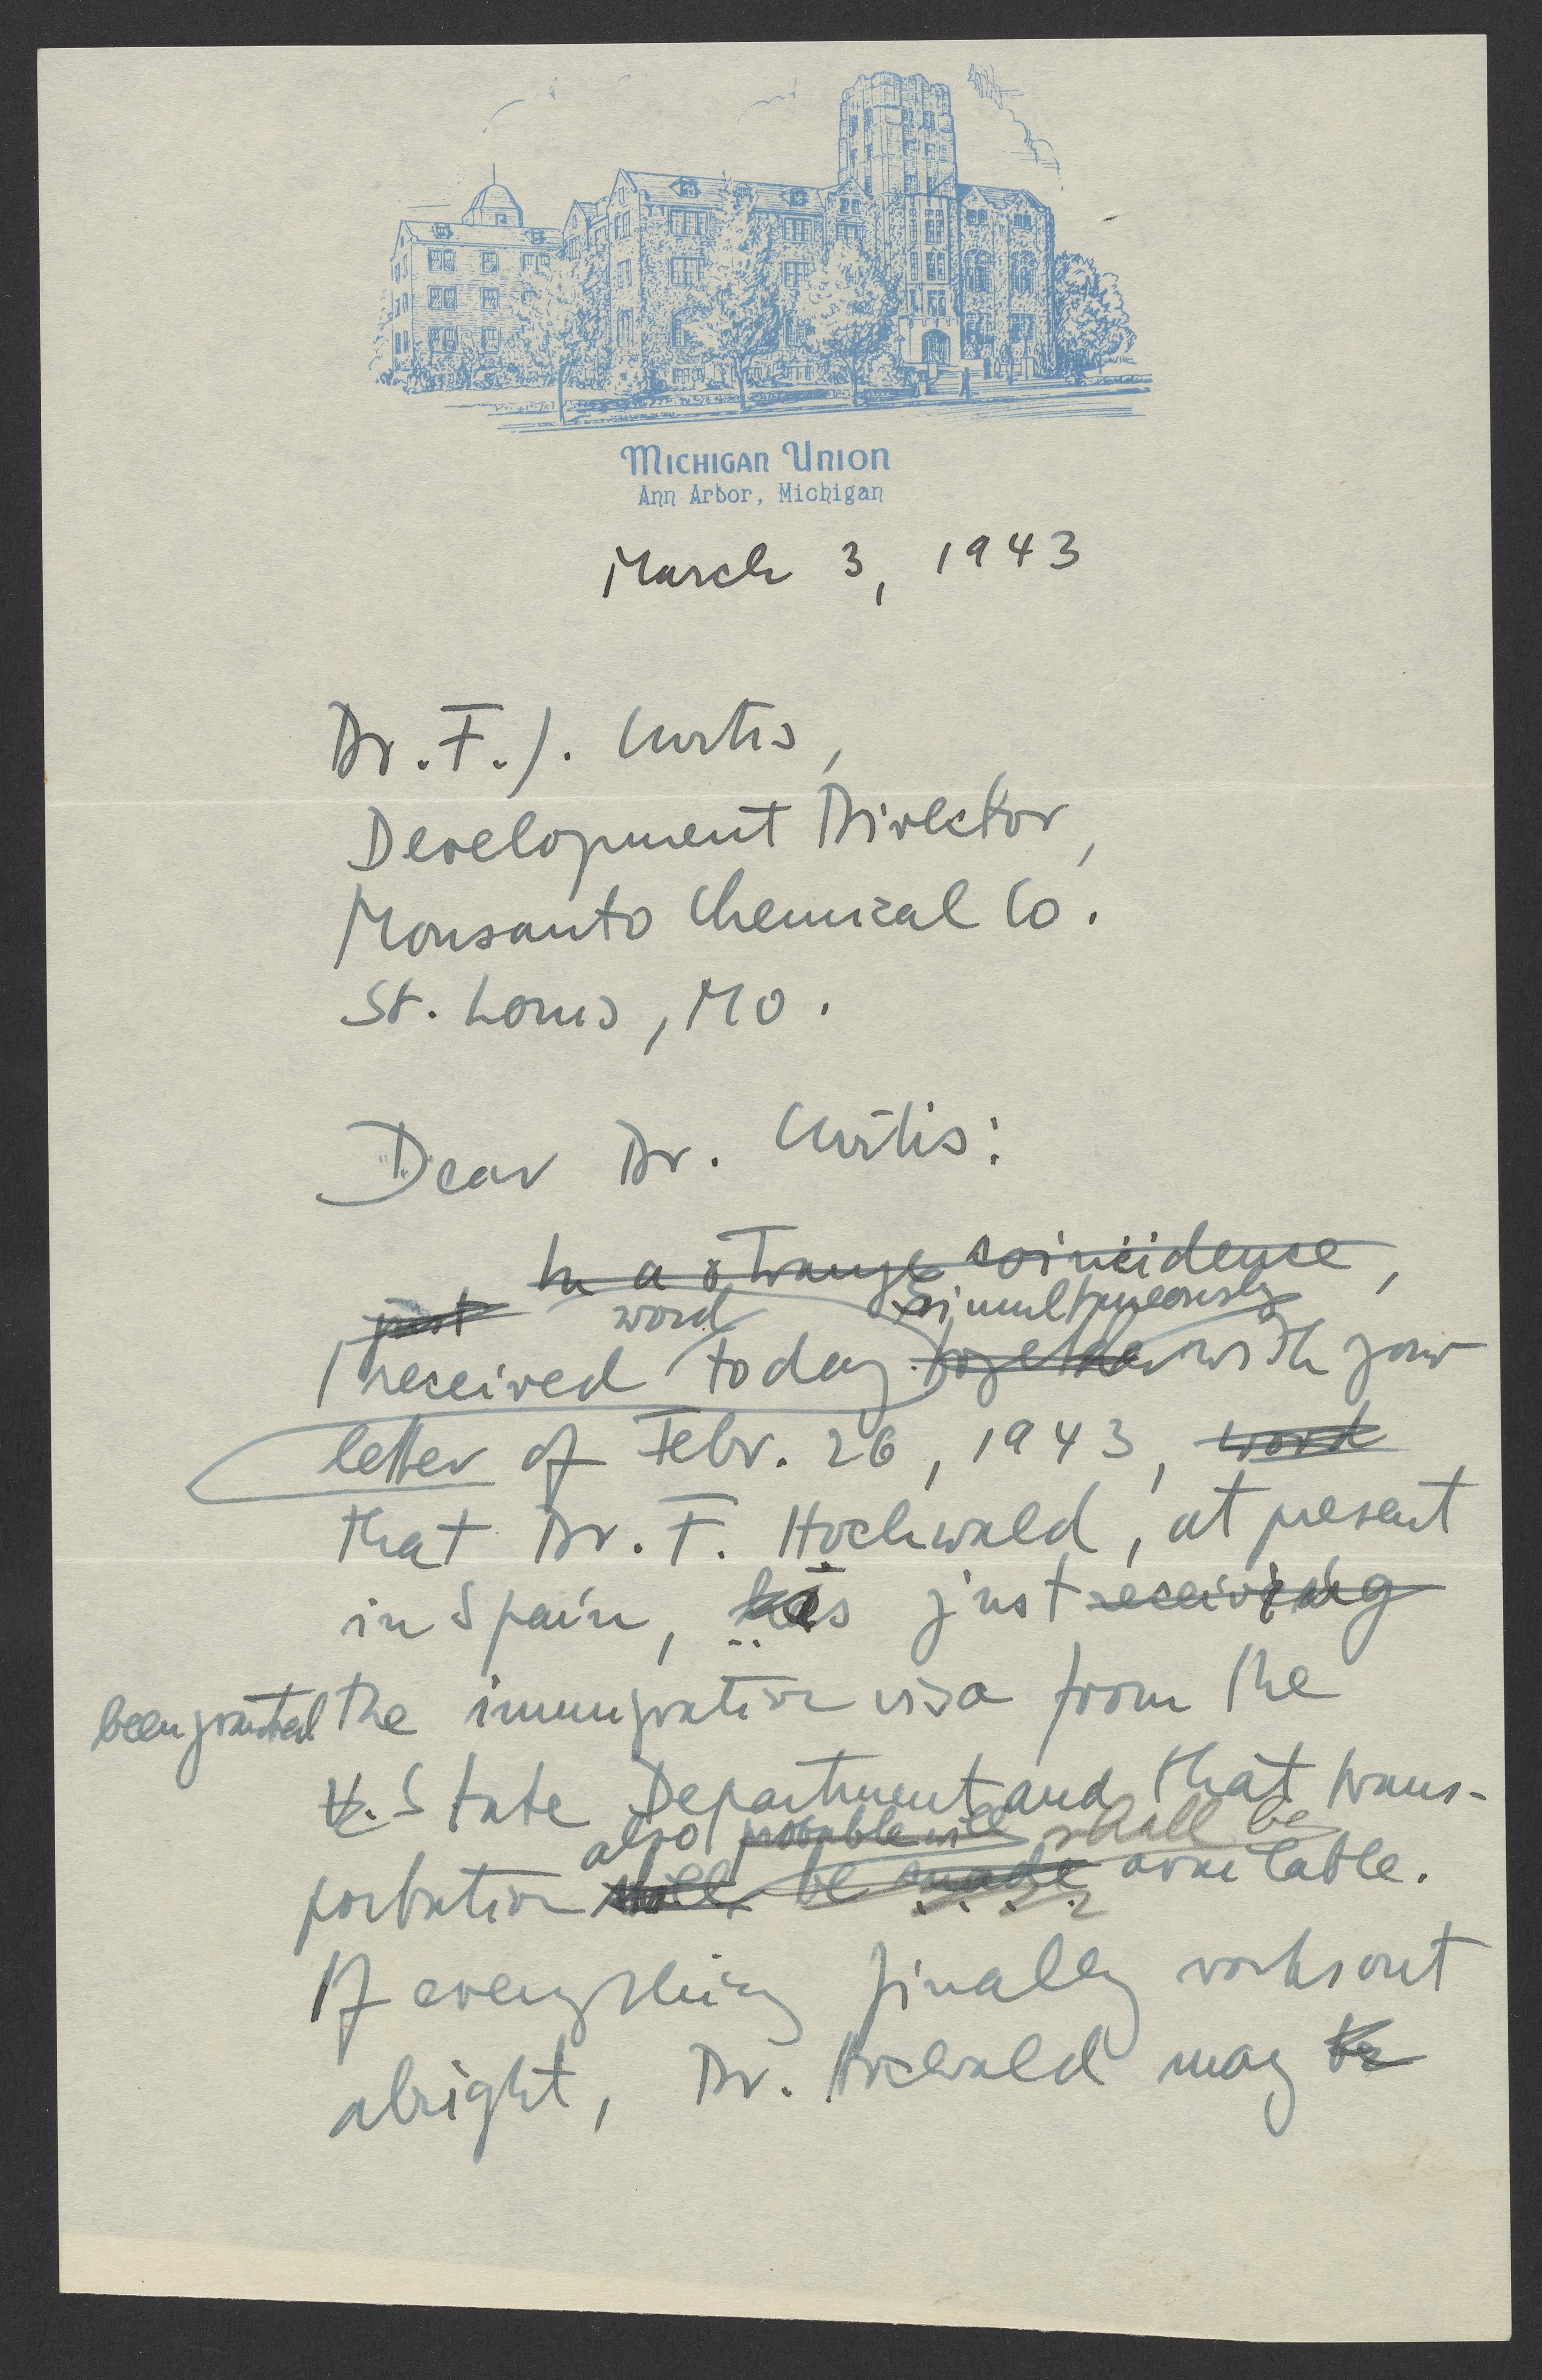 Michigan Union
Ann Arbor, Michigan
March 3, 1943
Dr. F. J. Curtis,
Development Director,
Monsanto Chemical Co.
St. Louis, Mo.
Dear Dr. Curtis:
In a strange coincidence,
just word simultaneously
I received today together with your
letter of Febr. 26, 1943, word
that Dr. F. Hochwald, at present
in Spain, has just receiving
been granted the immigration visa from the
U. State Department and that trans-
also probable will shall be
portation will be made available.
If everything finally works out
alright, Dr. Hochwald may be